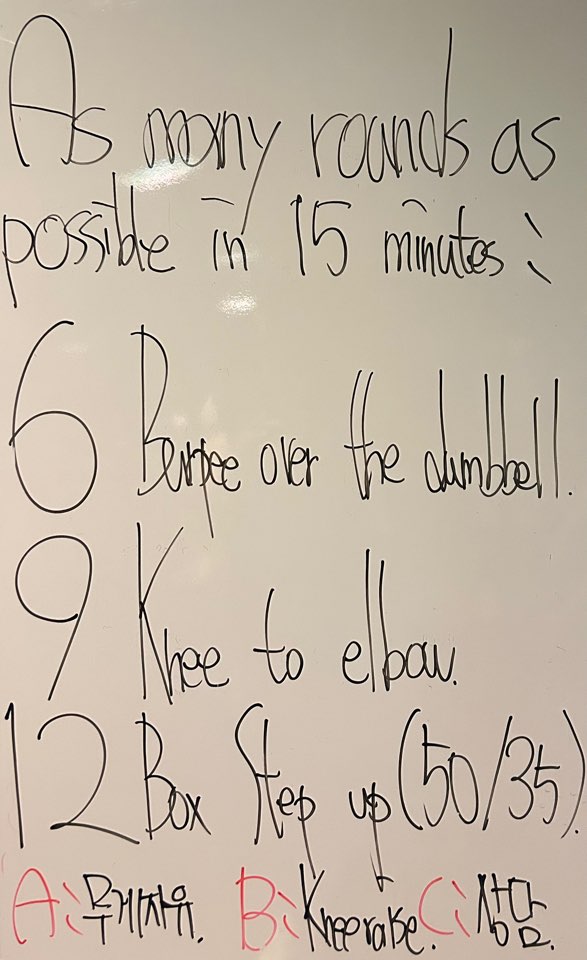 As many rounds as
possible in 15 minutes:
6 Burpee over the dumbbell.
9 Knee to elbow.
12 Box Step up (50/35).
A: 무게자유. B: Knee raise. C: 상담.